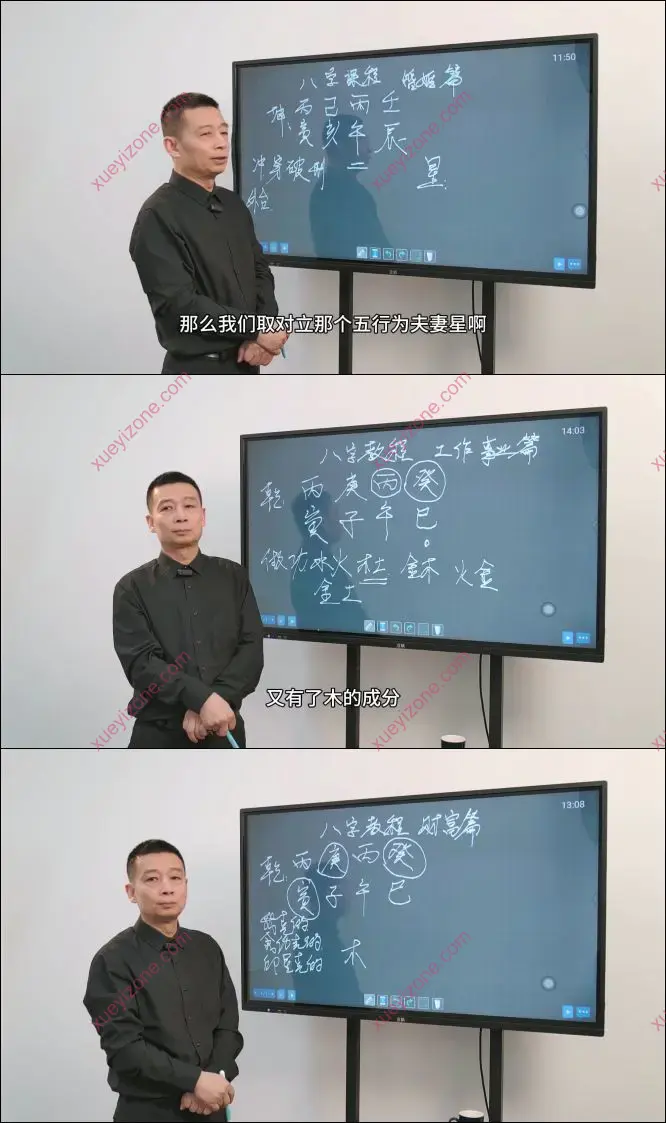 11:50
八字课程 婚姻篇
坤 丙 己 丙 壬
寅 亥 午 辰
冲穿破刑 二 星
xueyizone.com
xueyizone.com
那么我们取对立那个五行为夫妻星啊
xueyizone.com
xueyizone.com
14:03
八字教程 工作事业篇
乾 丙 庚 丙 癸
寅 子 午 巳
做功 水火 木土 金木 火金
金土
又有了木的成分
xueyizone.com
xueyizone.com
13:08
八字教程 财富篇
乾 丙 庚 丙 癸
寅 子 午 巳
印星克的 木
xueyizone.com
xueyizone.com